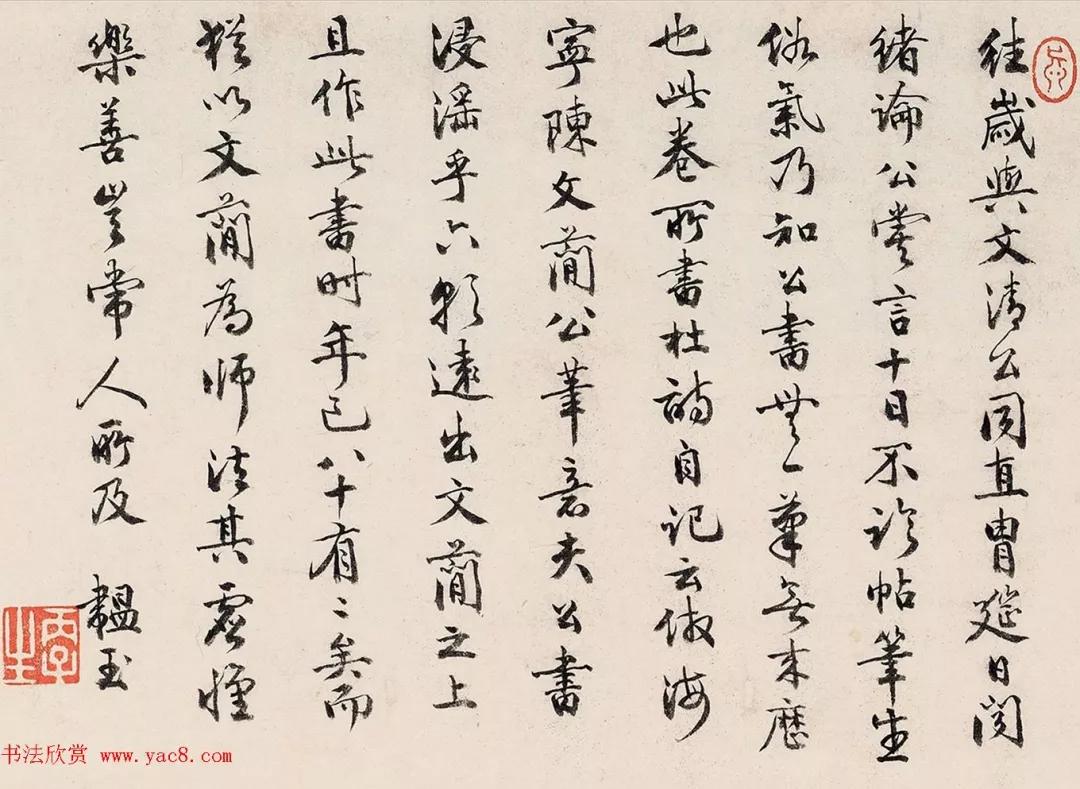 往歲與文清公同直胄筵日闻
緒論公嘗言十日不臨帖筆生
俗氣乃知公書無一筆無來歷
也此卷所書杜詩自記云倣海
寧陳文蕳公筆意夫公書
浸滛乎六朝遠出文蕳之上
且作此書时年已八十有二矣而
猶以文蕳為師法其虚懷
樂善豈常人所及 韞玉
书法欣赏 www.yac8.com